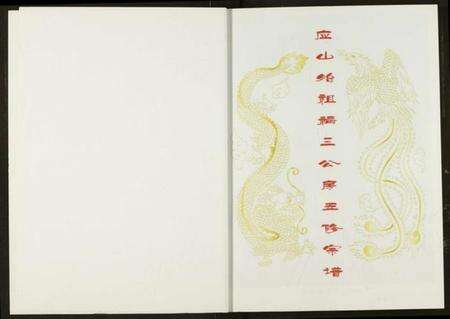 应山始祖福三公房五修宗谱